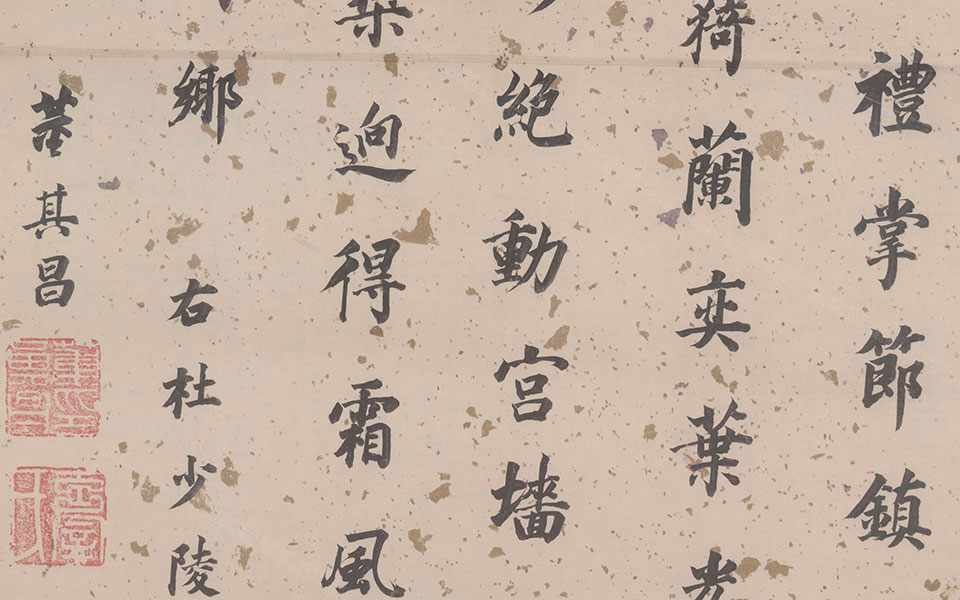 禮掌節鎮
猗蘭奕葉光
絕動宮墻
迥得霜風
鄉右杜少陵
董其昌